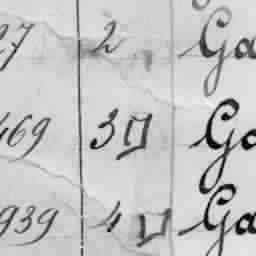 27 2 Ga
469 3 Ga
939 4 Ga